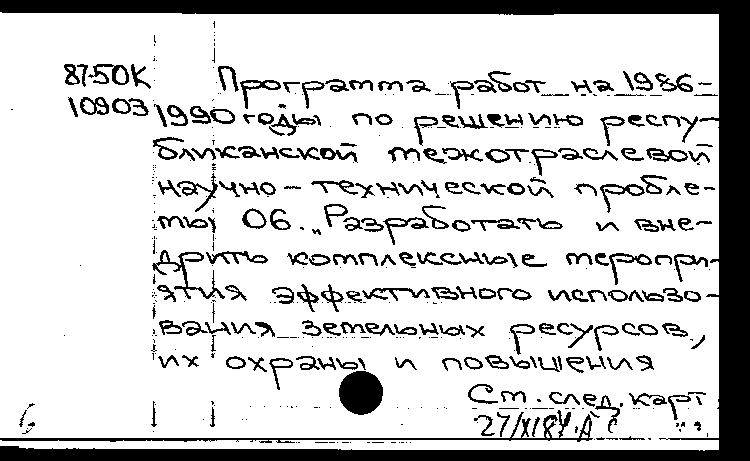 87-50К Программа работ на 1986-
10903 1990 годы по решению респу-
бликанской межотраслевой
научно-технической пробле-
мы 06. „Разработать и вне-
дрить комплексные меропри-
ятия эффективного использо-
вания земельных ресурсов,
их охраны и повышения
См. след. карт